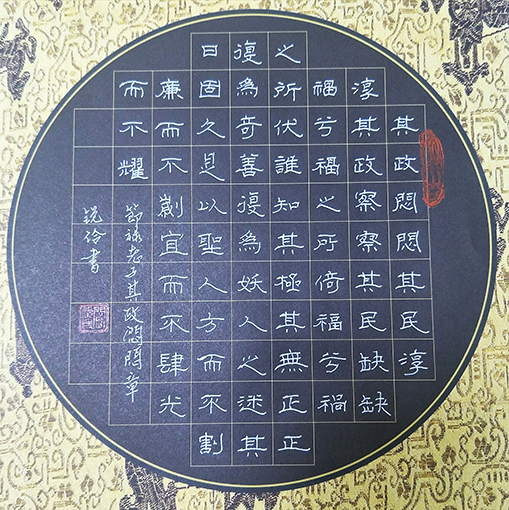 其政悶悶其民淳
淳其政察察其民缺缺
福兮福之所倚福兮禍
之所伏誰知其極其無正正
復為奇善復為妖人之迷其
日固久是以聖人方而不割
廉而不劌宜而不肆光
而不耀
節錄老子其政悶悶章
書